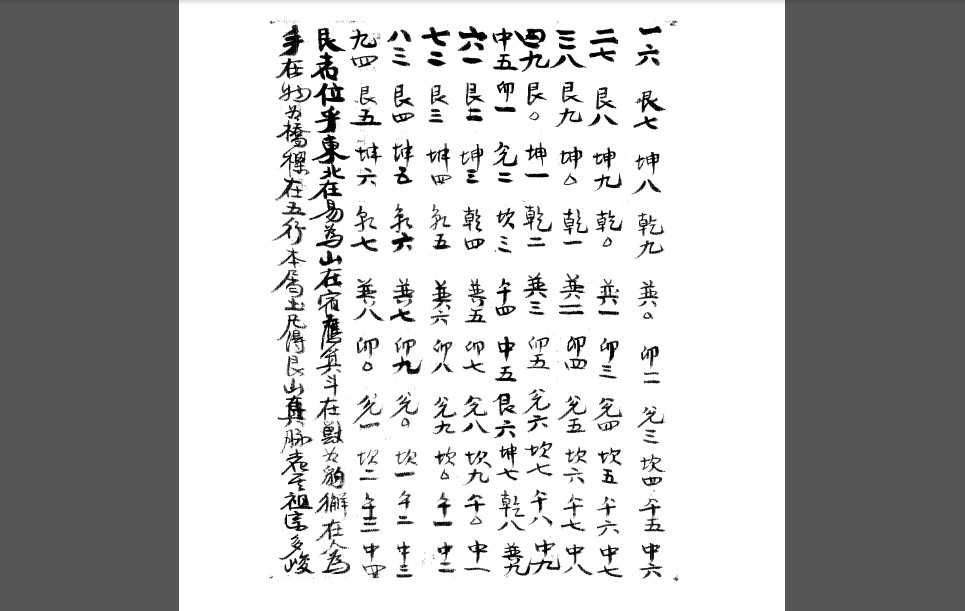 一六 艮七 坤八 乾九 巽〇 卯二 兌三 坎四 午五 中六
二七 艮八 坤九 乾〇 巽一 卯三 兌四 坎五 午六 中七
三八 艮九 坤〇 乾一 巽二 卯四 兌五 坎六 午七 中八
四九 艮〇 坤一 乾二 巽三 卯五 兌六 坎七 午八 中九
中五 卯一 兌二 坎三 午四 中五 艮六 坤七 乾八 巽九
六一 艮二 坤三 乾四 巽五 卯七 兌八 坎九 午〇 中一
七二 艮三 坤四 乾五 巽六 卯八 兌九 坎〇 午一 中二
八三 艮四 坤五 乾六 巽七 卯九 兌〇 坎一 午二 中三
九四 艮五 坤六 乾七 巽八 卯〇 兌一 坎二 午三 中四
艮者位乎東北在易為山在宿應箕斗在獸为豹獬在人為
手在物为橋樑在五行本屬土凡得艮山真脉者其祖宗多峻